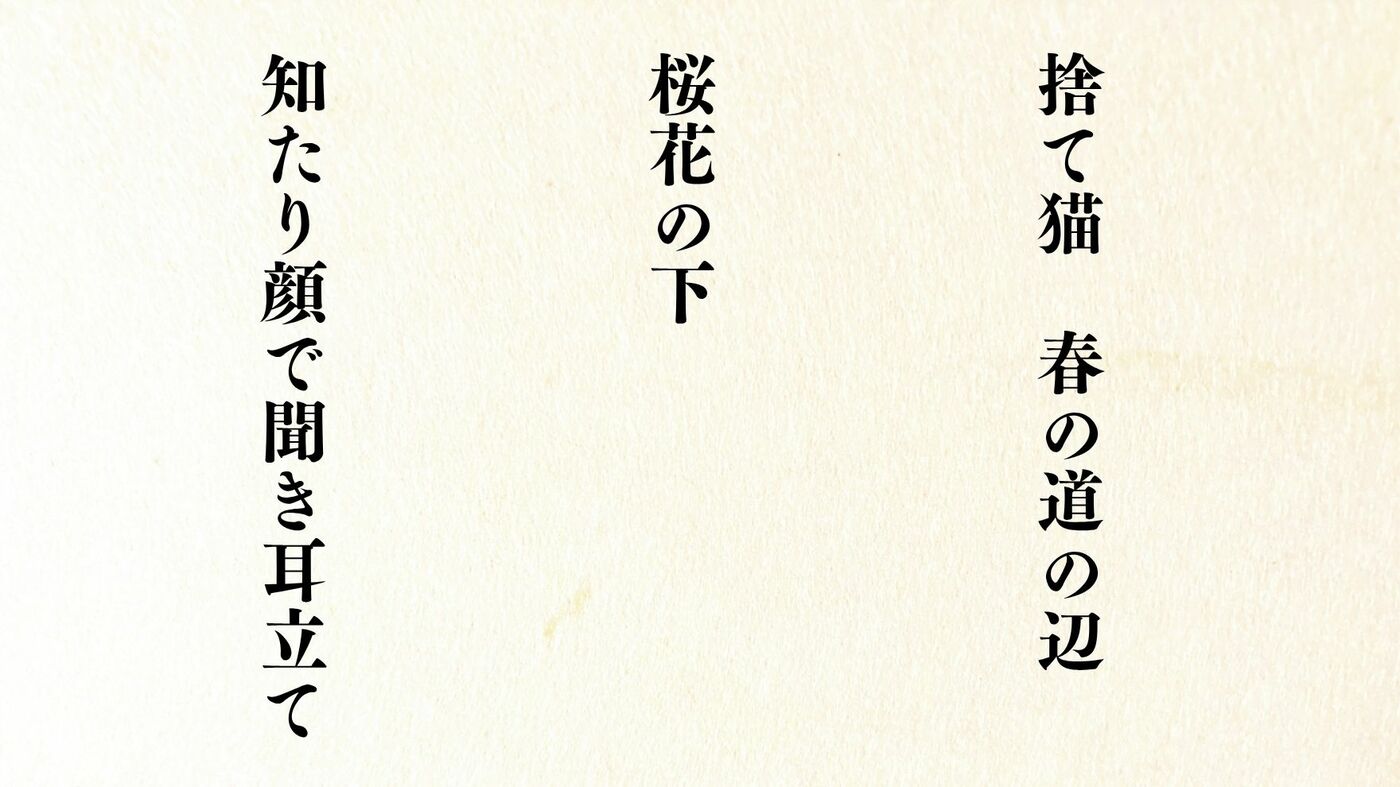 捨て猫　春の道の辺
桜花の下
知たり顔で聞き耳立て